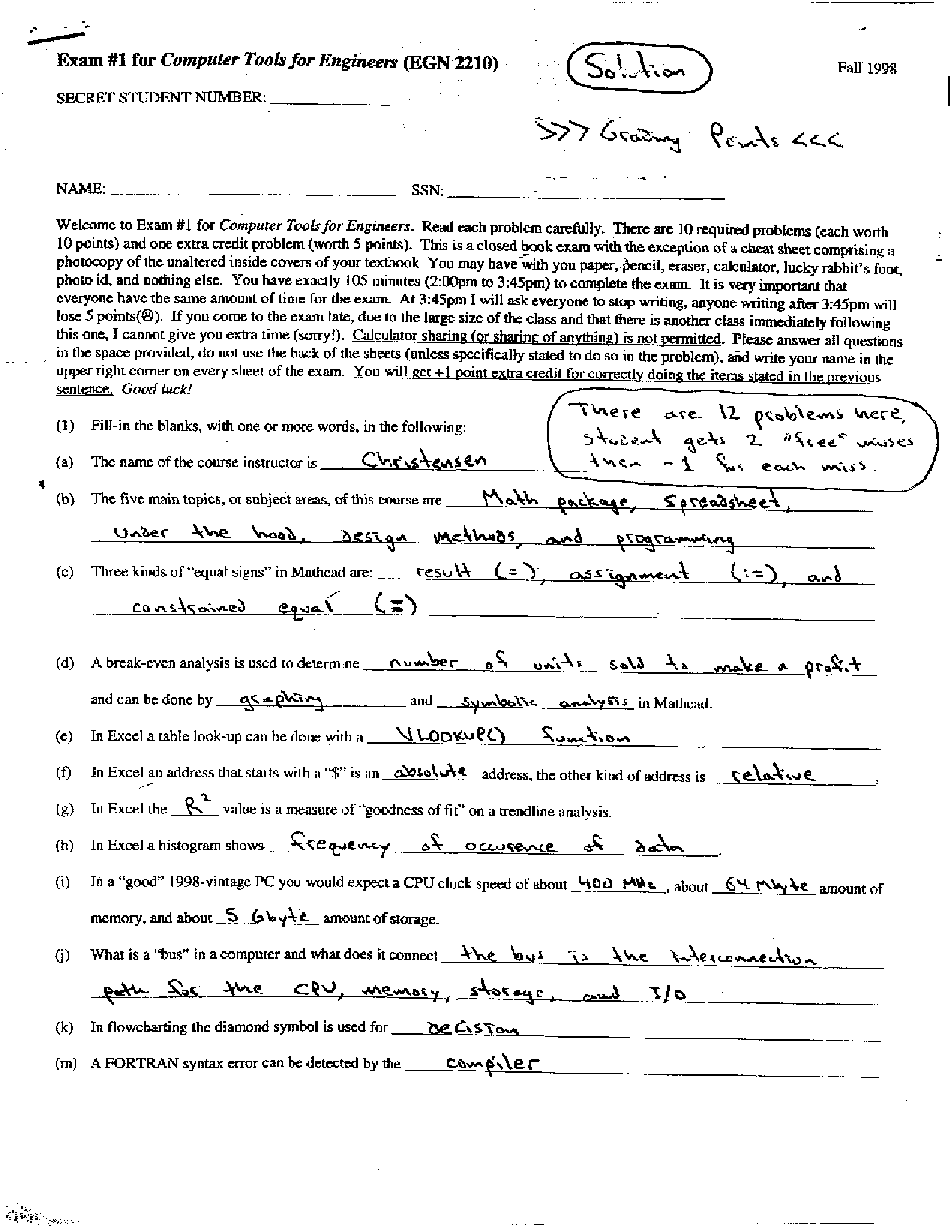 Exam #1 for Computer Tools for Engineers (EGN 2210)
Solution
Fall 1998
SECRET STUDENT NUMBER:
>>> Grading Points <<<
NAME: SSN:
Welcome to Exam #1 for Computer Tools for Engineers. Read each problem carefully. There are 10 required problems (each worth
10 points) and one extra credit problem (worth 5 points). This is a closed book exam with the exception of a cheat sheet comprising a
photocopy of the unaltered inside covers of your textbook You may have with you paper, pencil, eraser, calculator, lucky rabbit's foot,
photo id, and nothing else. You have exactly 105 minutes (2:00pm to 3:45pm) to complete the exam. It is very important that
everyone have the same amount of time for the exam. At 3:45pm I will ask everyone to stop writing, anyone writing after 3:45pm will
lose 5 points(☹). If you come to the exam late, due to the large size of the class and that there is another class immediately following
this one, I cannot give you extra time (sorry!). Calculator sharing (or sharing of anything) is not permitted. Please answer all questions
in the space provided, do not use the back of the sheets (unless specifically stated to do so in the problem), and write your name in the
upper right corner on every sheet of the exam. You will get +1 point extra credit for correctly doing the items stated in the previous
sentence. Good luck!
There are 12 problems here,
student gets 2 "free" misses
then -1 for each miss.
(1) Fill-in the blanks, with one or more words, in the following:
(a) The name of the course instructor is Christensen
(b) The five main topics, or subject areas, of this course are Math package, Spreadsheet,
under the hood, design methods, and programming
(c) Three kinds of "equal signs" in Mathcad are: result (=), assignment (:=), and
constrained equal (=)
(d) A break-even analysis is used to determine number of units sold to make a profit
and can be done by graphing and symbolic analysis in Mathcad.
(e) In Excel a table look-up can be done with a VLOOKUP() function
(f) In Excel an address that starts with a "$" is an absolute address, the other kind of address is relative.
(g) In Excel the R² value is a measure of "goodness of fit" on a trendline analysis.
(h) In Excel a histogram shows frequency of occurence of data.
(i) In a "good" 1998-vintage PC you would expect a CPU clock speed of about 400 MHz, about 64 Mbyte amount of
memory, and about 5 Gbyte amount of storage.
(j) What is a "bus" in a computer and what does it connect the bus is the interconnection
path for the CPU, memory, storage, and I/O
(k) In flowcharting the diamond symbol is used for decision
(m) A FORTRAN syntax error can be detected by the compiler